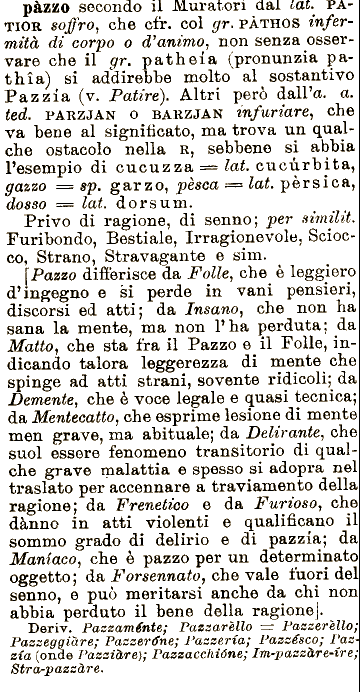 pàzzo secondo il Muratori dal lat. PA-
TIOR soffro, che cfr. col gr. PÀTHOS infer-
mità di corpo o d'animo, non senza osser-
vare che il gr. patheía (pronunzia pa-
thîa) si addirebbe molto al sostantivo
Pazzía (v. Patire). Altri però dall'a. a.
ted. PARZJAN O BARZJAN infuriare, che
va bene al significato, ma trova un qual-
che ostacolo nella R, sebbene si abbia
l'esempio di cucuzza = lat. cucúrbita,
gazzo = sp. garzo, pèsca = lat. pèrsica,
dosso = lat. dorsum.
Privo di ragione, di senno; per similit.
Furibondo, Bestiale, Irragionevole, Scioc-
co, Strano, Stravagante e sim.
[Pazzo differisce da Folle, che è leggiero
d'ingegno e si perde in vani pensieri,
discorsi ed atti; da Insano, che non ha
sana la mente, ma non l'ha perduta; da
Matto, che sta fra il Pazzo e il Folle, in-
dicando talora leggerezza di mente che
spinge ad atti strani, sovente ridicoli; da
Demente, che è voce legale e quasi tecnica;
da Mentecatto, che esprime lesione di mente
men grave, ma abituale; da Delirante, che
suol essere fenomeno transitorio di qual-
che grave malattia e spesso si adopra nel
traslato per accennare a traviamento della
ragione; da Frenetico e da Furioso, che
dànno in atti violenti e qualificano il
sommo grado di delirio e di pazzía; da
Maníaco, che è pazzo per un determinato
oggetto; da Forsennato, che vale fuori del
senno, e può meritarsi anche da chi non
abbia perduto il bene della ragione].
Deriv. Pazzaménte; Pazzarèllo = Pazzerèllo;
Pazzeggiàre; Pazzeróne; Pazzería; Pazzésco; Paz-
zía (onde Pazziàre); Pazzacchióne; Im-pazzàre-íre;
Stra-pazzàre.